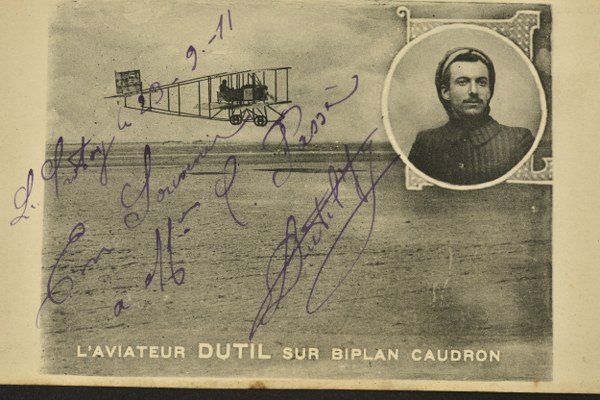 Le Crotoy le 23-9-11
En Souvenir
a Mr C. Passé
Dutil
L'AVIATEUR DUTIL SUR BIPLAN CAUDRON